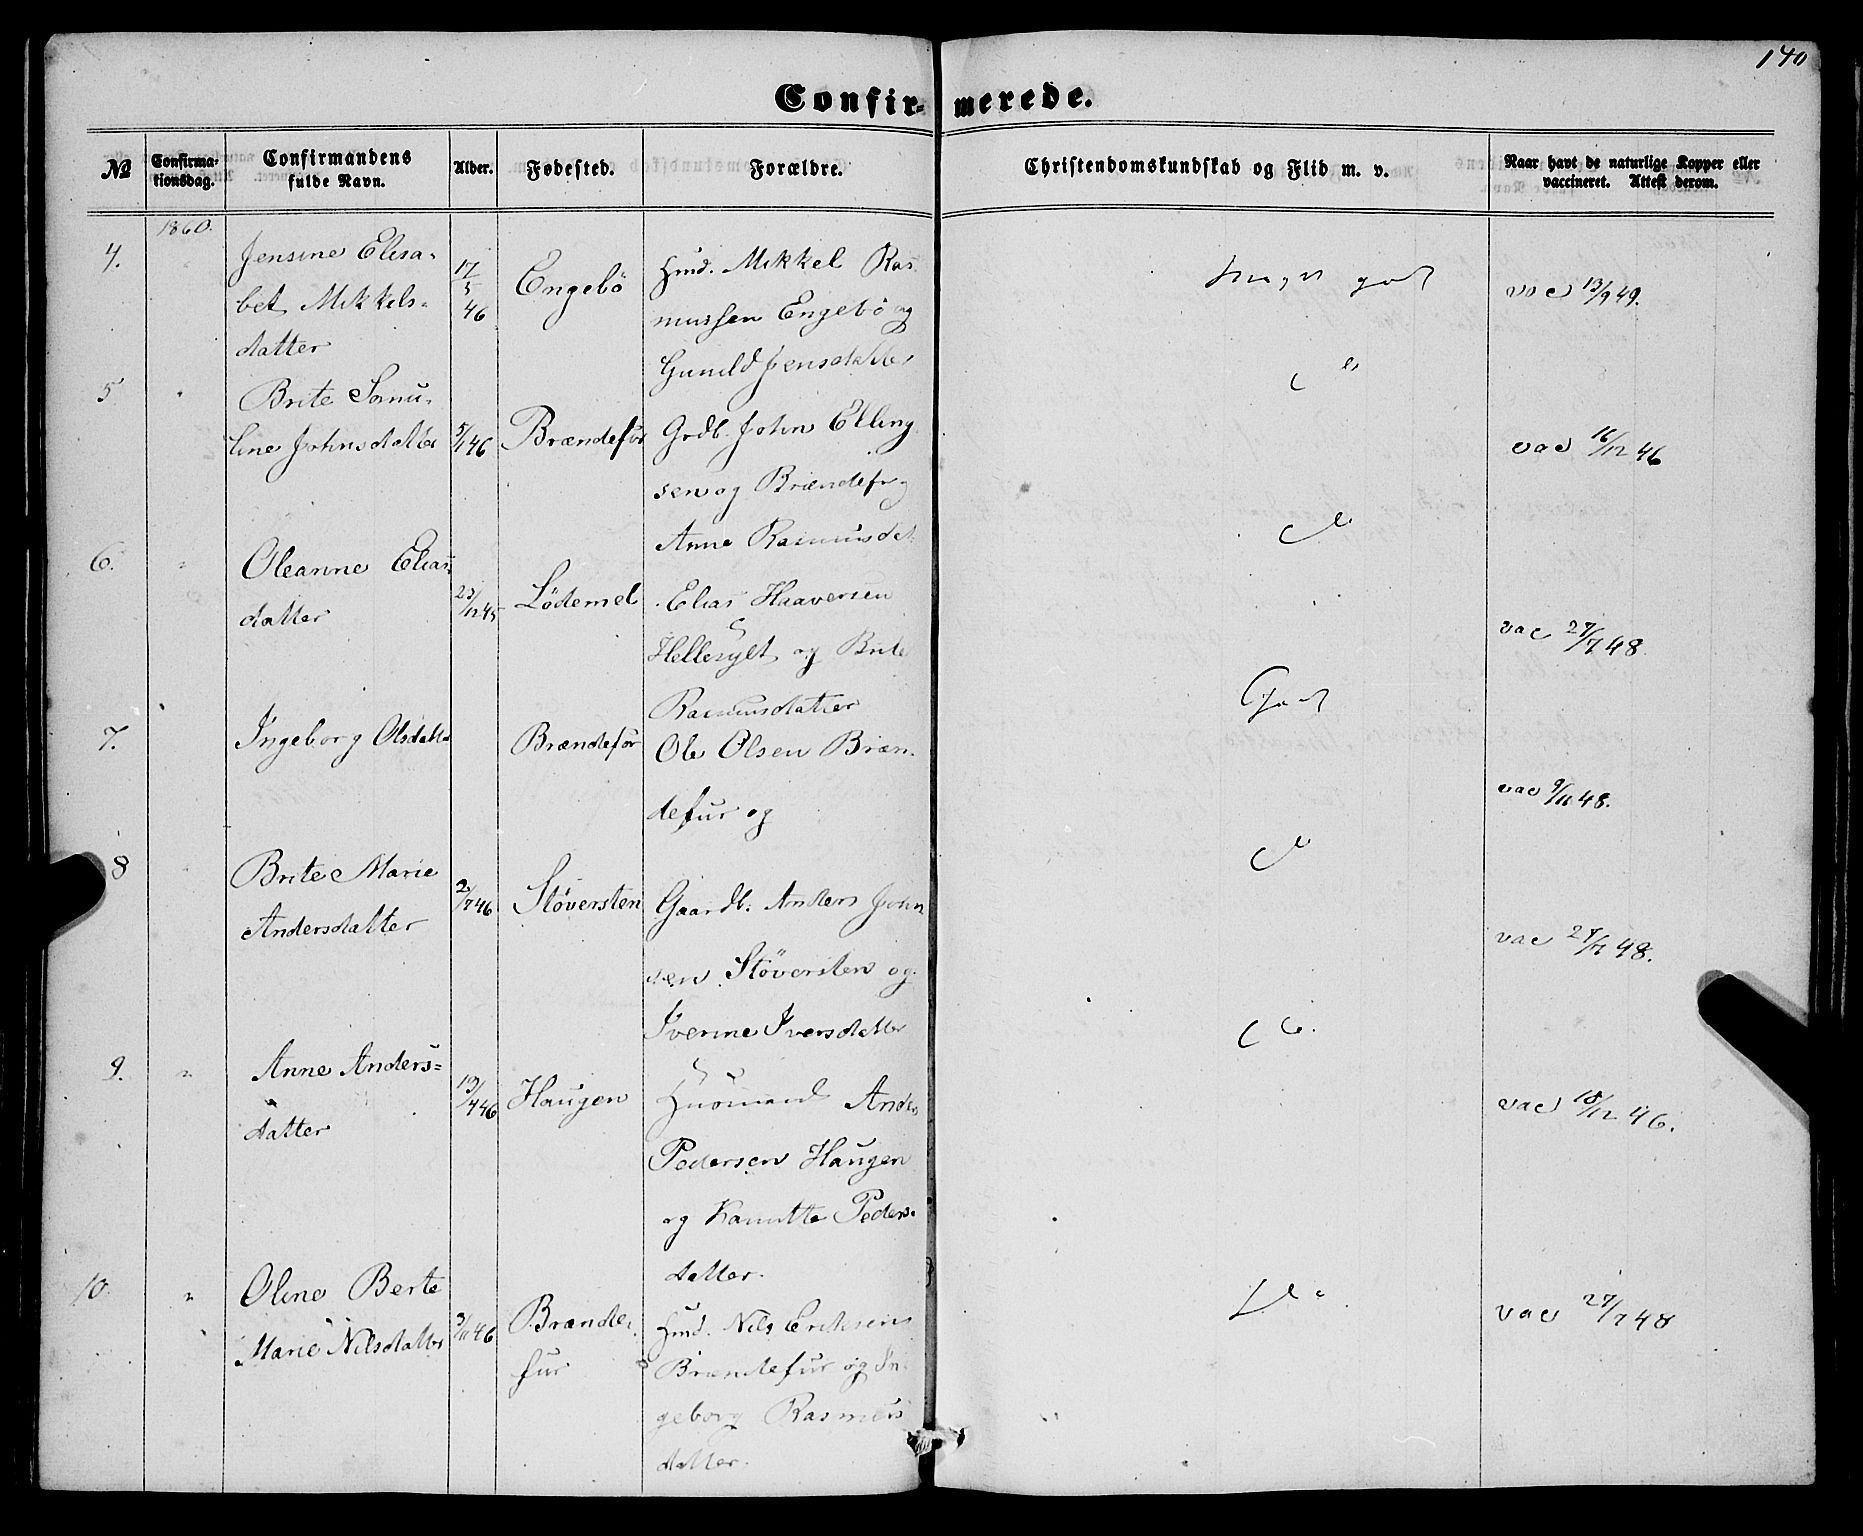 140
Confir- merede.
№ Confirma-tionsdag. Confirmandens fulde Navn. Alder. Fødested. Forældre. Christendomskundskab og Flid m. v. Naar havt de naturlige Kopper eller vaccineret. Attest derom.
1860.
4. Jensine Elisa-
bet Mikkels-
datter
17/5 46
Engebö
Hmd. Mikkel Ras
mussen Engebö og
Gunild Jensdatter
meget godt
vac 13/9 49.
5 " Brite Somu-
line Johnsdatter
5/1 46
Brændefur
Grdb. John Elling
sen og Brændefur
Anne Rasmusdat
vac 16/12 46
6. " Oleanne Elias
datter
23/12 45
Lödemel
Elias Haaversen
Hellesylt og Brite
Rasmusdatter
vac 27/7 48
7. Ingeborg Olsdatter
Brændefur
Ole Olsen Bræn-
defur og
Godt
vac 9/11 48.
8 Brite Marie
Andersdatter
2/7 46
Stöversten
Gaardb. Anders John
sen Stöversten og
Iverine Iversdatter
vac 27/7 48.
9. " Anne Anders=
datter
19/4 46
Haugen
Huusmand Anders
Pedersen Haugen
og Kanutte Peders-
datter.
vac 18/12 46.
10. " Oline Berte
Marie Nilsdatter
3/11 46
Brænde-
fur
Hmd. Nils Eriksen
Brændefur og In
geborg Rasmus
datter.
vac 27/7 48